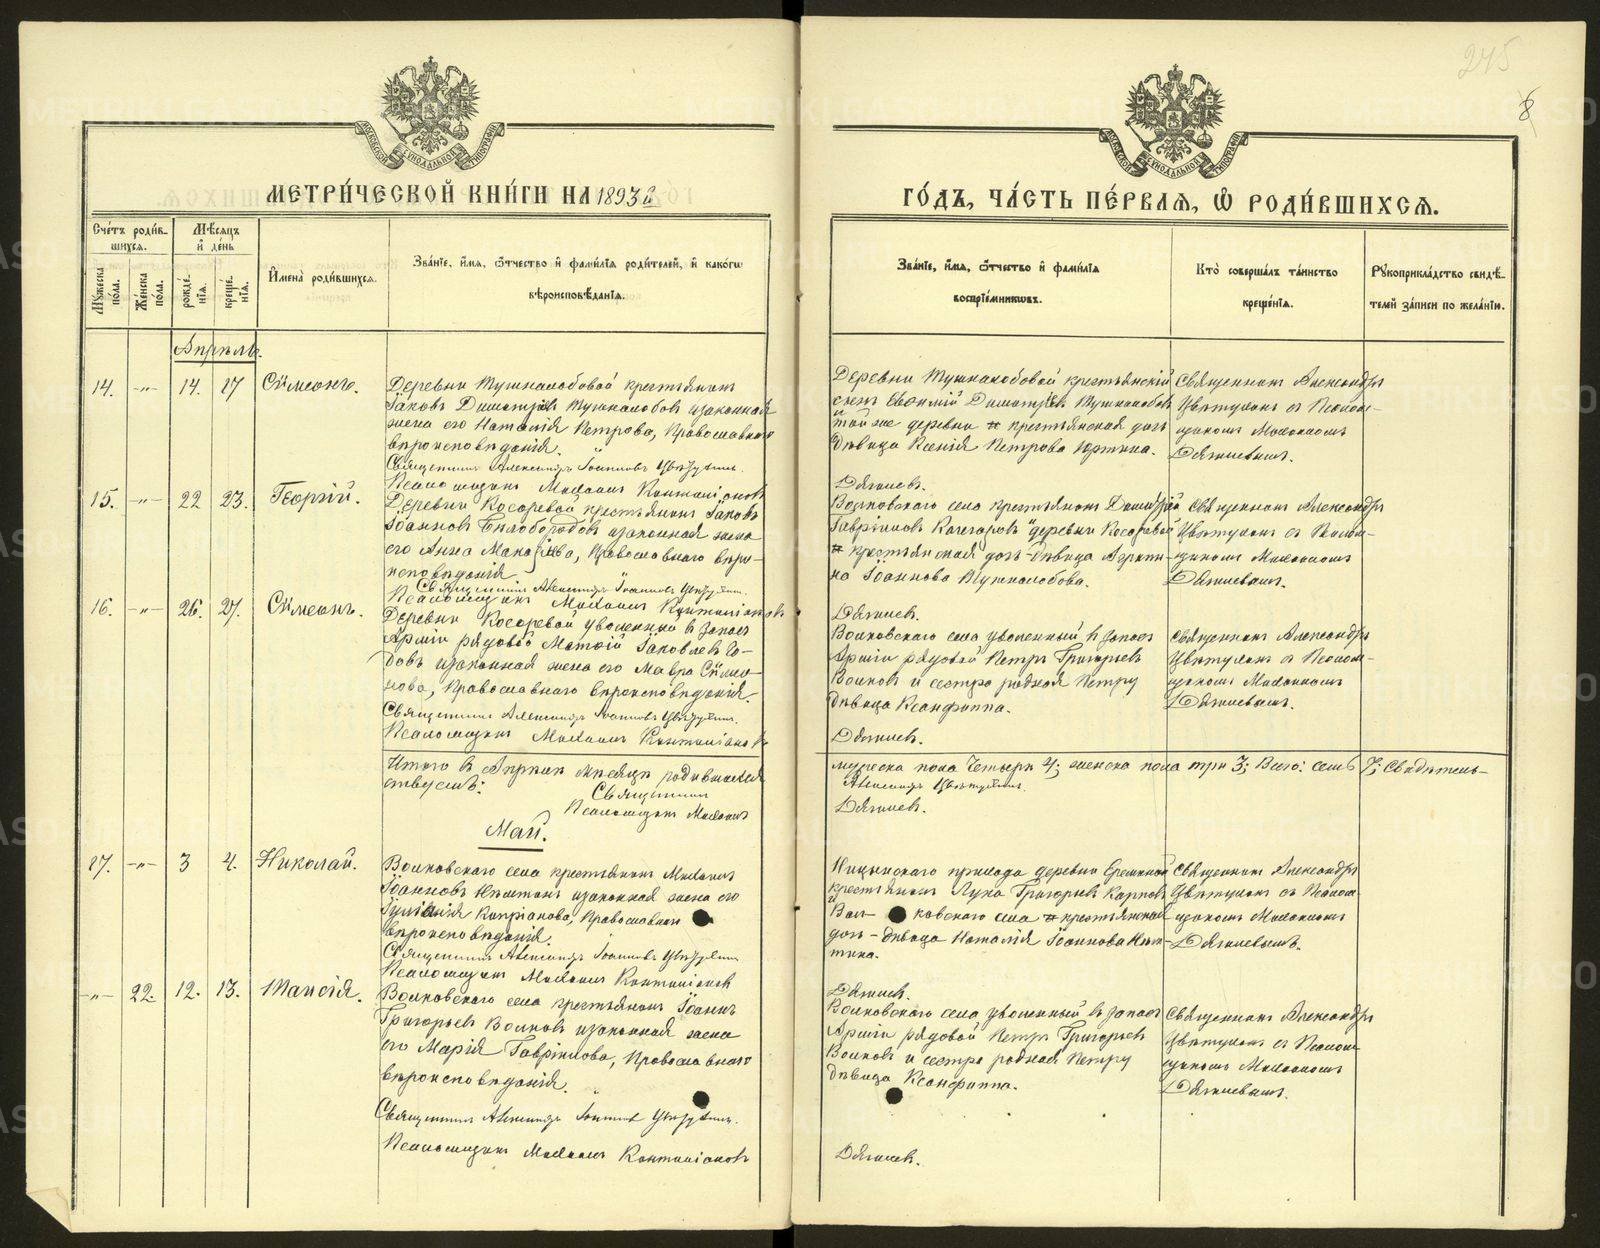 245
8
МОСКОВСКОЙ СѴНОДАЛЬНОЙ ТИПОГРАФІИ
МОСКОВСКОЙ СѴНОДАЛЬНОЙ ТИПОГРАФІИ
МЕТРИ́ЧЕСКОЙ КНИ́ГИ НА 1893й
ГО́ДЪ, ЧА́СТЬ ПЕ́РВАѦ, Ѽ РОДИ́ВШИХСѦ.
Сче́тъ роди́вшихсѧ.
Мѣ́сѧцъ и҆ де́нь
Мꙋ́жеска по́ла.
Же́нска по́ла.
рожде́нїѧ.
креще́нїѧ.
И҆мена̀ роди́вшихсѧ.
Зва́нїе, и҆́мѧ, ѻ҆́тчество и҆ фамѝлїѧ роди́телей, и҆ како́гѡ
вѣроисповѣ́данїѧ.
Зва́нїе, и҆́мѧ, ѻ҆́тчество и҆ фамѝлїѧ
воспрїе́мникѡвъ.
Кто̀ соверша́лъ та́инство
креще́нїѧ.
Рꙋкоприкла́дство свидѣ́-
телей за́писи по жела́нїю.
Апрѣль.
14. -„- 14. 17 Сѵмеонъ.
Деревни Тушкалобовой крестьянинъ
Іаковъ Димитріевъ Тушкалобовъ и законная
жена его Наталія Петрова, Православнаго
вѣроисповѣданія.
Священникъ Александръ Іоанновъ Цвѣтухинъ.
Псаломщикъ Михаилъ
Деревни Тушкалобовой крестьянскій
сынъ Евѳимій Димитріевъ Тушкалобовъ
и той же деревни крестьянская дочь
дѣвица Ксенія Петрова Юртина.
Дягилевъ.
Священникъ Александръ
Цвѣтухинъ съ Псалом-
щикомъ Михаиломъ
Дягилевымъ.
15. -„- 22 23. Георгій.
Деревни Косаревой крестьянинъ Іаковъ
Іоанновъ Бѣлобородовъ и законная жена
его Анна Макарова, Православнаго вѣро-
исповѣданія
Священникъ Александръ Іоанновъ Цвѣтухинъ.
Псаломщикъ Михаилъ
Волковскаго села крестьянинъ Димитрій
Гавріиловъ Качегаровъ и деревни Косаревой
крестьянская дочь дѣвица Агрипи-
на Іоаннова Тушкалобова.
Дягилевъ.
Священникъ Александръ
Цвѣтухинъ съ Псалом-
щикомъ Михаиломъ
Дягилевымъ.
16. -„- 26. 27. Сѵмеонъ.
Деревни Косаревой уволенный въ запасъ
Арміи рядовой Матѳій Іаковлевъ Го-
довъ и законная жена его Мавра Сѵмео-
нова, Православнаго вѣроисповѣданія.
Священникъ Александръ Іоанновъ Цвѣтухинъ.
Псаломщикъ Михаилъ
Волковскаго села уволенный въ запасъ
Арміи рядовой Петръ Григорьевъ
Волковъ и сестра родная Петру
дѣвица Ксанфиппа.
Дягилевъ.
Священникъ Александръ
Цвѣтухинъ съ Псалом-
щикомъ Михаиломъ
Дягилевымъ.
Итого въ Апрѣлѣ мѣсяцѣ родившихся
мужеска пола Четыре 4; женска пола три 3; Всего: семь 7; Свидѣтель-
ствуемъ:
Священникъ Александръ Цвѣтухинъ.
Псаломщикъ Михаилъ Дягилевъ.
Май.
17. -„- 3 4. Николай.
Волковскаго села крестьянинъ Михаилъ
Іоанновъ Никитинъ и законная жена его
Іуліанія Кипріанова, Православнаго
вѣроисповѣданія.
Священникъ Александръ Іоанновъ Цвѣтухинъ
Псаломщикъ Михаилъ
Ницынскаго прихода деревни Ереминой
крестьянинъ Лука Григорьевъ Карповъ
и Вол-ковскаго села крестьянская
дочь - дѣвица Наталія Іоаннова Ники-
тина.
Дягилевъ.
Священникъ Александръ
Цвѣтухинъ съ Псалом-
щикомъ Михаиломъ
Дягилевымъ.
-„- 22. 12. 13. Таисія.
Волковскаго села крестьянинъ Іоаннъ
Григорьевъ Волковъ и законная жена
его Марія Гавріилова, Православнаго
вѣроисповѣданія.
Священникъ Александръ Іоанновъ Цвѣтухинъ.
Псаломщикъ Михаилъ
Волковскаго села уволенный въ запасъ
Арміи рядовой Петръ Григорьевъ
Волковъ и сестра родная Петру
дѣвица Ксанфиппа.
Дягилевъ.
Священникъ Александръ
Цвѣтухинъ съ Псалом-
щикомъ Михаиломъ
Дягилевымъ.